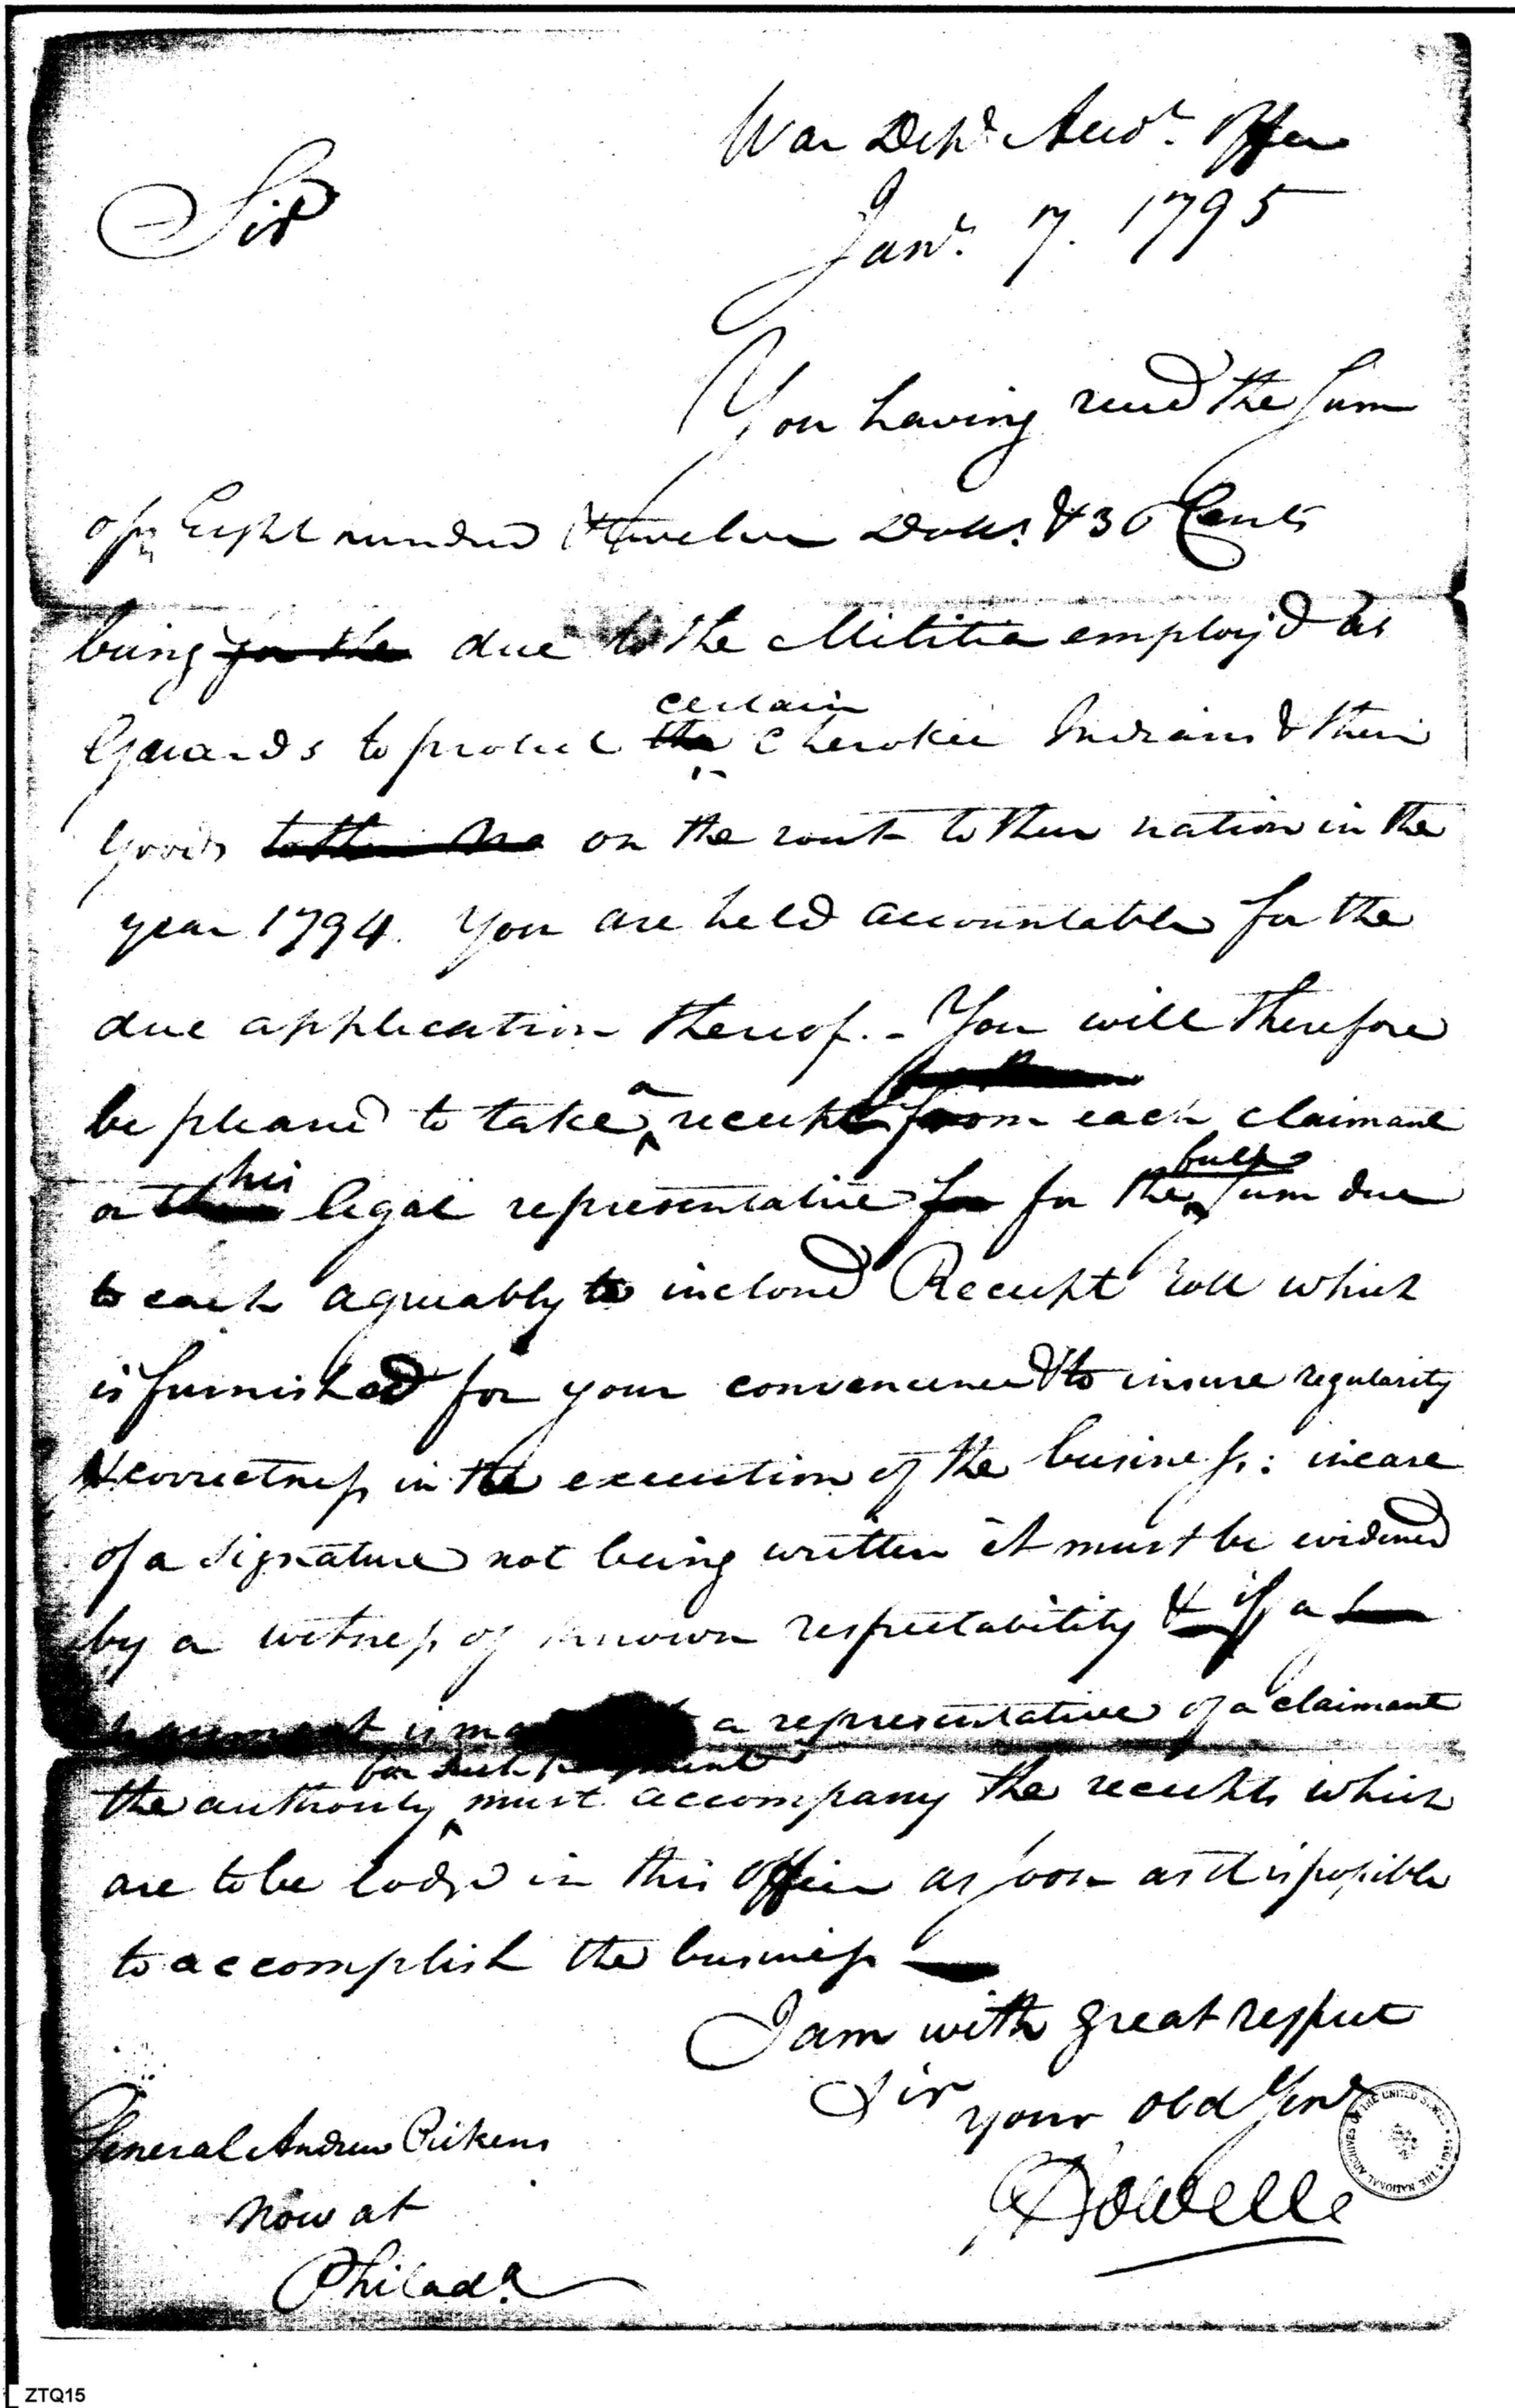 War Dept. Accot. Office
Jany. 7. 1795
Sir
You having recd the Sum
of Eight hundred & twelve Dolls. & 30 Cents
being for the due to the Militia employ'd as
certain
Guards to protect the Cherokee Indians & their
goods on the route to their nation in the
year 1794. You are held accountable for the
due application thereof. - You will therefore
be pleased to take a receipt from each claimant
his full
or legal representative for for the Sum due
to each agreeably to inclosed Receipt roll which
is furnished for your convenience & to insure regularity
& correctness in the execution of the business: in case
of a signature not being written it must be evidenced
by a witness of known respectability & if a
payment is made a representative of a claimant
for such payment
the authority must accompany the receipts which
are to be lodged in this Office as soon as it is possible
to accomplish the business
I am with great respect
Sir your obd Servt
Howell
General Andrew Pickens
Now at
Philada.
THE NATIONAL ARCHIVES OF THE UNITED STATES
ZTQ15